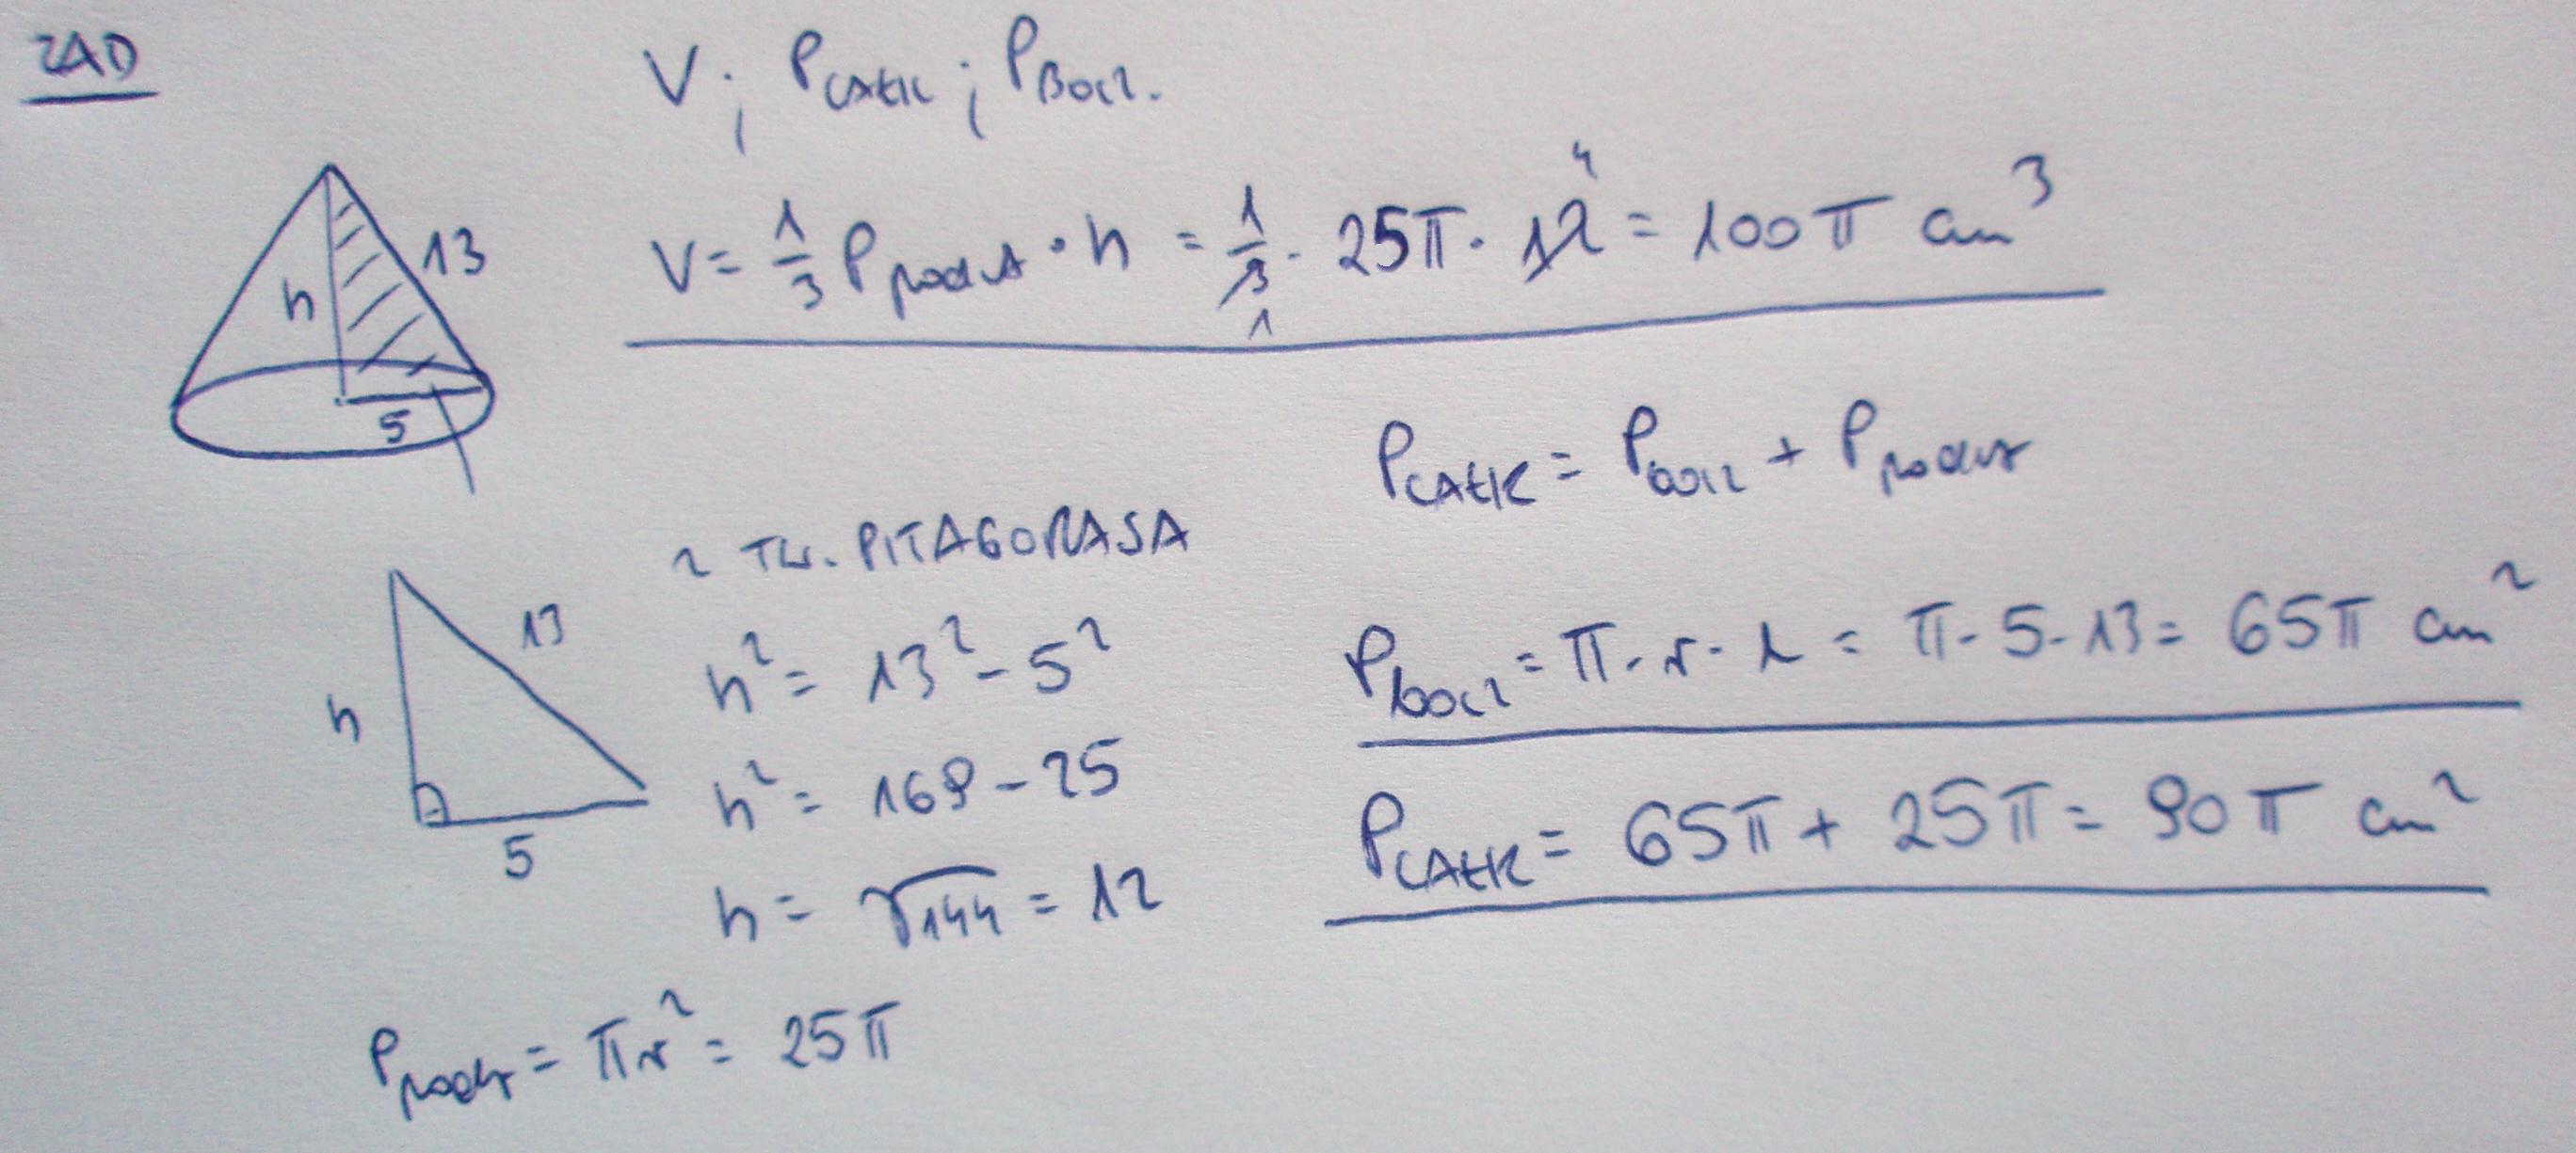 ZAD
V; P CAŁK; P BOCZ.
V = 1/3 P podst · h = 1/3 · 25π · 12 = 100π cm³
4
1
13
h
5
P CAŁK = P bocz + P podst
z TW. PITAGORASA
13
h
5
h² = 13² - 5²
h² = 169 - 25
h = √144 = 12
P bocz = π · r · l = π · 5 · 13 = 65π cm²
P CAŁK = 65π + 25π = 90π cm²
P podst = πr² = 25π